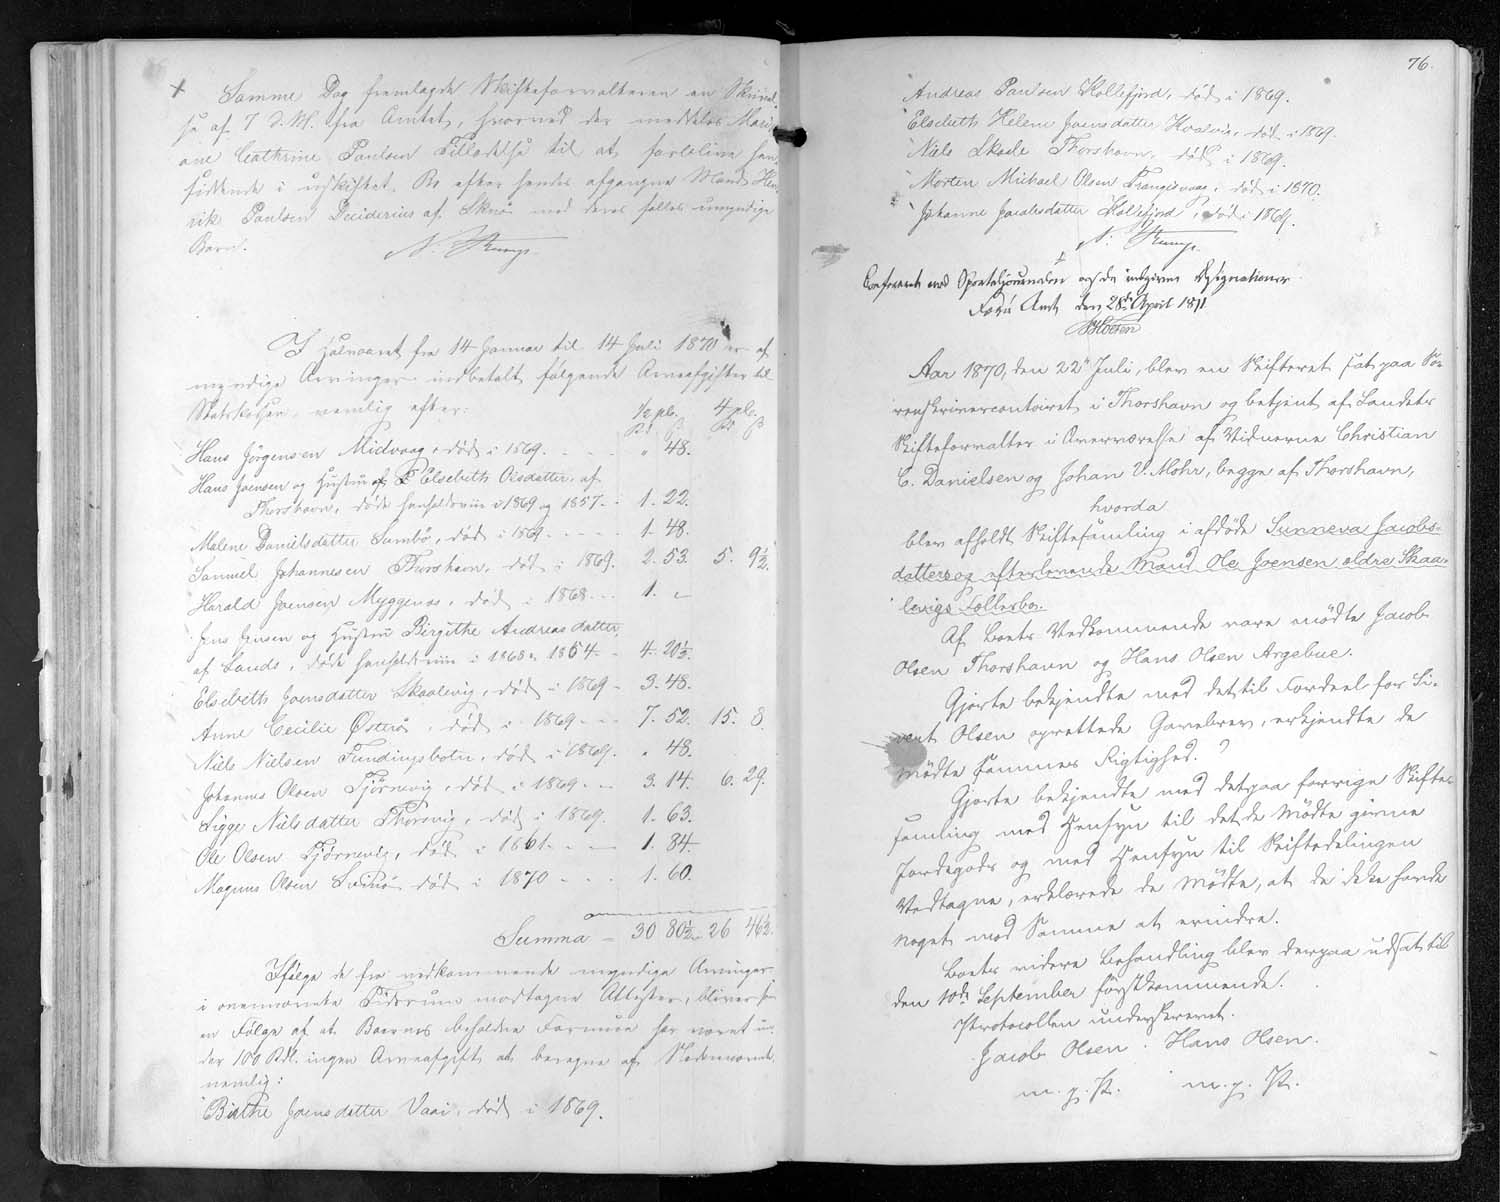 Samme Dag fremlagde Skifteforvalteren en Skrivel-
se af 7 d. M. fra Amtet, hvorved der meddeles Mari-
ane Cathrine Paulsen Tilladelse til at forblive hen-
siddende i uskiftet Bo efter hendes afgangne Mand Hen-
rik Paulsen Desiderius af Skuø med deres fælles umyndige
Barn.
N:
I Halvaaret fra 14 Januar til 14 Juli 1870 er af
myndige Arvinger indbetalt følgende Arveafgifter til
Statskassen, nemlig efter: ½ pC. 4 pC.
Rd ß Rd ß
Hans Jörgensen Midvaag, död i 1869. - - - " 48.
Hans Joensen og Hustru Elsebeth Olesdatter, af
Thorshavn, døde henholdsviis i 1869 og 1857 - - 1. 22.
Malene Danielsdatter Sumbö, død i 1869. - - - - 1. 48.
Samuel Johannesen Thorshavn, død i 1869. - 2. 53. 5. 9½.
Harald Joensen Myggenæs, død i 1868 - - - 1. "
Jens Jensen og Hustru Birgithe Andreasdatter,
af Sands, døde henholdsviis i 1868 1854 - - 4. 20½.
Elsebeth Joensdatter Skaalevig, død i 1869 - 3. 48.
Anne Cecilie Østerø, død i 1869 - - - 7. 52. 15. 8
Niels Nielsen Fundingsbotn, død i 1869. " 48.
Johannes Olsen Tjørnevig, død i 1869. - - 3. 14. 6. 29.
Sigge Nielsdatter Thorsvig, død i 1869. 1. 63.
Ole Olsen Tjørnevig, død i 1861. - - - 1. 84.
Magnus Olsen Svinø død i 1870 - - - 1. 60.
Summa - 30 80½ 26 46½.
Ifølge de fra vedkommende myndige Arvinger
i ovennævnte Tidsrum modtagne Attester, bliver som
en Følge af at Boernes beholdne Formue har været un-
der 100 Rdl. ingen Arveafgift at beregne af Nedennævnte
nemlig:
Birthe Joensdatter Vaai, død i 1869.
76.
Andreas Paulsen Kollefjord, død i 1869.
Elsebeth Helene Joensdatter Hvalvig, død i 1869.
Niels Skaale Thorshavn, død i 1869.
Morten Michael Olsen Frangisvaag, død i 1870.
Johanne Jacobsdatter Kollefjord, død i 1869.
N:
Confereret med Sporteljournalen og de indgivne Designationer
Færö Amt den 28de April 1871
Aar 1870, den 22de Juli, blev en Skifteret sat paa So-
renskrivercontoiret i Thorshavn og betjent af Landets
Skifteforvalter i Overværelse af Vidnerne Christian
C. Danielsen og Johan V. Mohr, begge af Thorshavn,
hvorda
blev afholdt Skiftesamling i afdøde Sunneva Jacobs-
datters og efterlevende Mand Ole Joensen ældre Skaa-
levigs Fællesbo.
Af Boets Vedkommende vare mødte Jacob
Olsen Thorshavn og Hans Olsen Argebøe.
Gjorte bekjendte med det til Fordeel for Si-
vert Olsen oprettede Gavebrev, erkjendte de
Mødte Sammes Rigtighed.
Gjorte bekjendte med det paa forrige Skifte-
samling med Hensyn til det de Mødte givne
Jordegods og med Hensyn til Skiftedelingen
Vedtagne, erklærede de Mødte, at de ikke havde
noget mod Samme at erindre.
Boets videre Behandling blev derpaa udsat til
den 10de September førstkommende.
Protocollen underskrevet.
Jacob Olsen. Hans Olsen.
m. p. P. m. p. P.